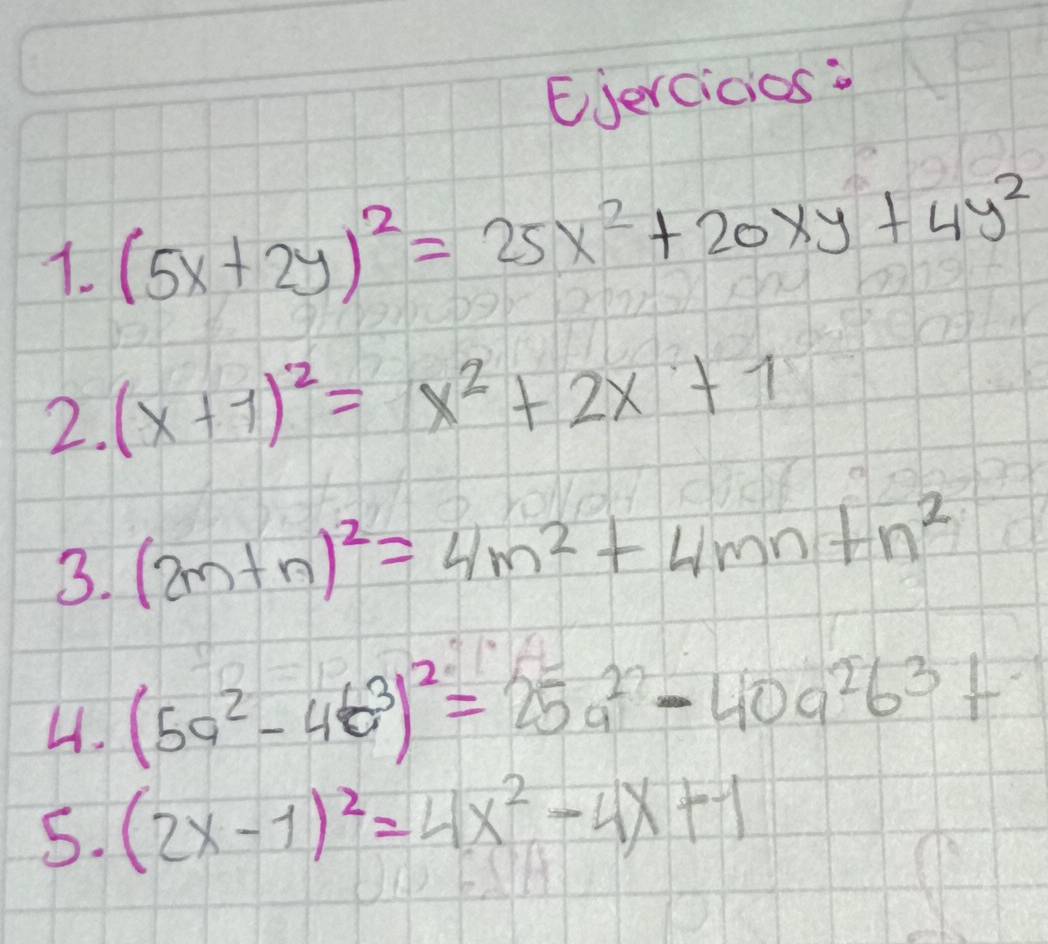 Ejercicios:
1. (5x+2y)² = 25x² + 20xy + 4y²
2. (x+1)² = x² + 2x + 1
3. (2m+n)² = 4m² + 4mn + n²
4. (5a² - 4b³)² = 25a² - 40a²b³ +
5. (2x-1)² = 4x² - 4x + 1